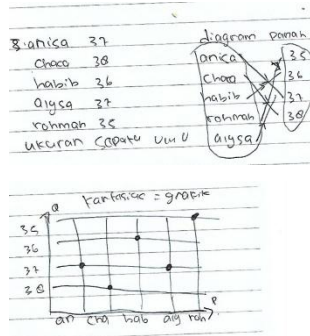 8. anisa 37
chaca 38
habib 36
aiysa 37
rohmah 35
ukuran sepatu
diagram panah
anisa
chaca
habib
rohmah
aiysa
35
36
37
38
kartesius = grafik
Q
35
36
37
38
an cha hab aiy roh P